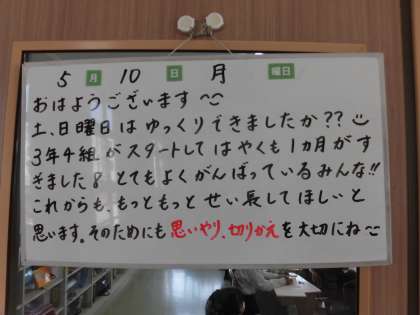 5月10日月曜日
おはようございます
土、日曜日はゆっくりできましたか??
3年4組がスタートしてはやくも1カ月がす
ぎました。とてもよくがんばっているみんな!!
これからも、もっともっとせい長してほしいと
思います。そのためにも思いやり、切りかえを大切にね〜